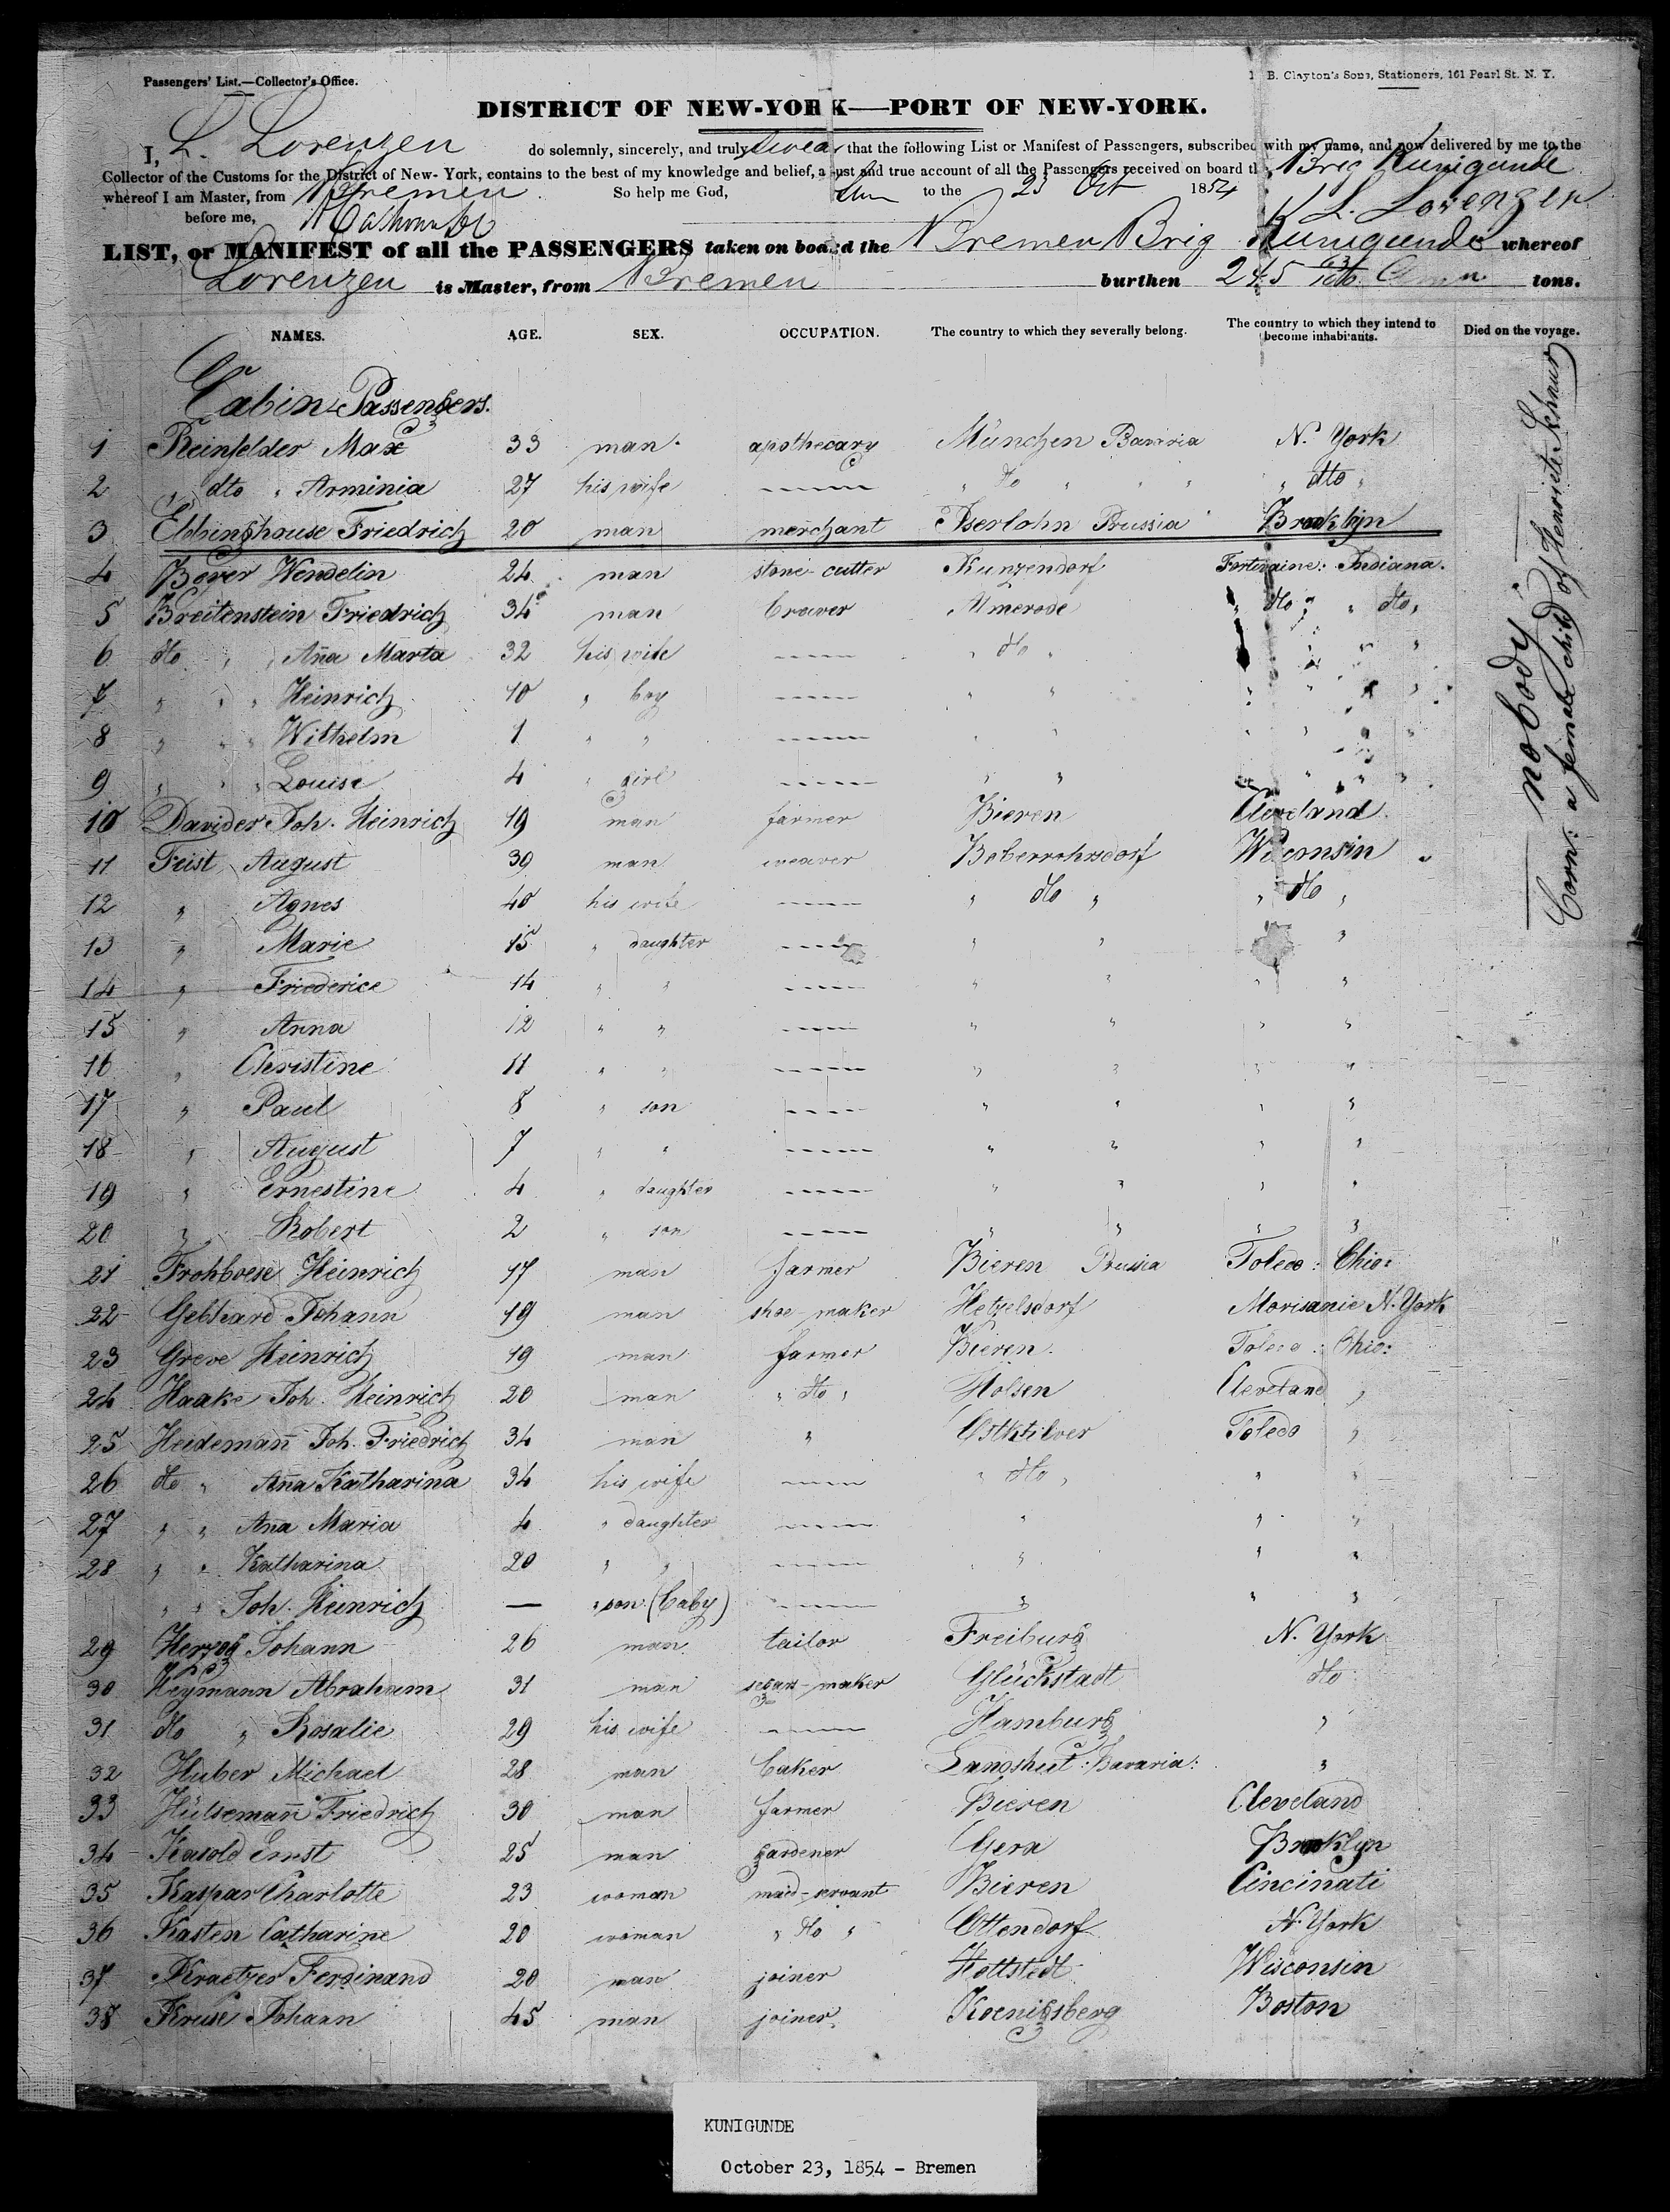 Passengers' List.—Collector's Office.
B. Clayton's Sons, Stationers, 161 Pearl St. N. Y.
DISTRICT OF NEW-YORK—PORT OF NEW-YORK.
I, L. Lorenzen do solemnly, sincerely, and truly swear that the following List or Manifest of Passengers, subscribed with my name, and now delivered by me to the
Collector of the Customs for the District of New-York, contains to the best of my knowledge and belief, a just and true account of all the Passengers received on board the Brig Kunigunde
whereof I am Master, from Bremen. So help me God, to the 23 Oct 1854 L. Lorenzen
before me,
LIST, or MANIFEST of all the PASSENGERS taken on board the Bremen Brig Kunigunde whereof
Lorenzen is Master, from Bremen burthen 245 tons.
NAMES. AGE. SEX. OCCUPATION. The country to which they severally belong. The country to which they intend to become inhabitants. Died on the voyage.
Cabin Passengers.
1 Reinfelder Max 33 man apothecary München Bavaria N. York
2 " dto " Arminia 27 his wife " do " " " " dto "
3 Ebbinghouse Friedrich 20 man merchant Iserlohn Prussia Brooklyn
4 Beyer Wendelin 24 man stone-cutter Kunzendorf Indiana.
5 Breitenstein Friedrich 34 man brewer Almerode " do " " do "
6 do " " Aña Marta 32 his wife " do " " "
7 " " " Heinrich 10 " boy " " " " "
8 " " " Wilhelm 1 " " " " " " "
9 " " " Louise 4 " girl " " " " "
10 Davider Joh. Heinrich 19 man farmer Bieren Cleveland
11 Feist August 39 man weaver Boberrohrsdorf Wisconsin
12 " Agnes 40 his wife " do " " do "
13 " Marie 15 " daughter " " "
14 " Friederice 14 " " " " " "
15 " Anna 12 " " " " " "
16 " Christine 11 " " " " " "
17 " Paul 8 " son " " " "
18 " August 7 " " " " " "
19 " Ernestine 4 " daughter " " " "
20 " Robert 2 " son " " " "
21 Frohboese Heinrich 17 man farmer Bieren Prussia Toledo: Ohio:
22 Gebhard Johann 19 man shoe-maker Hetzelsdorf Morisanie N. York
23 Greve Heinrich 19 man farmer Bieren Toledo: Ohio:
24 Haake Joh. Heinrich 20 man " do " Holsen Cleveland "
25 Heidemañ Joh. Friedrich 34 man " Toledo "
26 do " Aña Katharina 34 his wife " do " " "
27 " " Aña Maria 4 " daughter " " "
28 " " Katharina 20 " " " " "
" " Joh. Heinrich — " son (baby) " " "
29 Herzog Johann 26 man tailor Freiburg N. York
30 Heymann Abraham 31 man segars-maker Glückstadt do
31 do " Rosalie 29 his wife Hamburg "
32 Huber Michael 28 man baker Landshut: Bavaria: "
33 Hülsemañ Friedrich 30 man farmer Bieren Cleveland
34 Kasold Ernst 25 man gardener Gera Brooklyn
35 Kaspar Charlotte 23 woman maid-servant Bieren Cincinati
36 Kasten Catharine 20 woman " do " Ottendorf N. York
37 Kraetzer Ferdinand 20 man joiner Hottstedt Wisconsin
38 Kruse Johann 45 man joiner Koenigsberg Boston
nobody.
born: a female child of Henriete
KUNIGUNDE
October 23, 1854 - Bremen